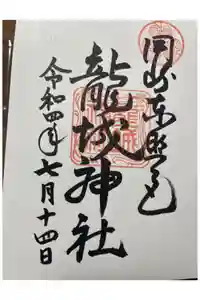 岡崎東照宮
龍城神社
令和四年七月十四日